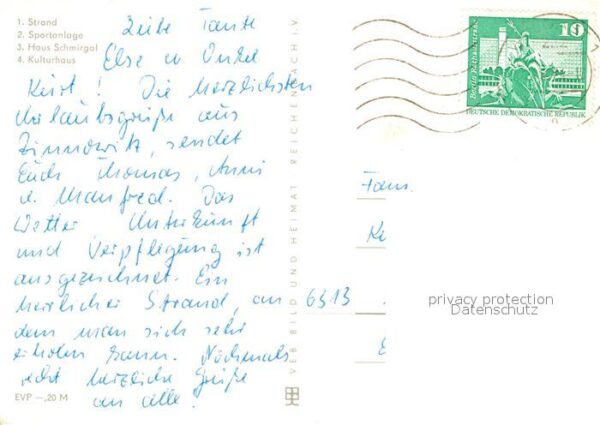 1. Strand
2. Sportanlage
3. Haus Schmirgal
4. Kulturhaus
Liebe Tante
Else u Onkel
Kurt! Die herzlichsten
Urlaubsgrüße aus
Zinnowitz, sendet
Euch Thomas, Anni
u. Manfred. Das
Wetter Unterkunft
und Verpflegung ist
ausgezeichnet. Ein
herrlicher Strand, an
dem man sich sehr
erholen kann. Nochmals
recht herzliche Grüße
an alle!
EVP –,20 M
VEB BILD UND HEIMAT REICHENBACH I. V.
10
Berlin Rathausstraße
DEUTSCHE DEMOKRATISCHE REPUBLIK
Fam.
Ke
6313
privacy protection
Datenschutz
E